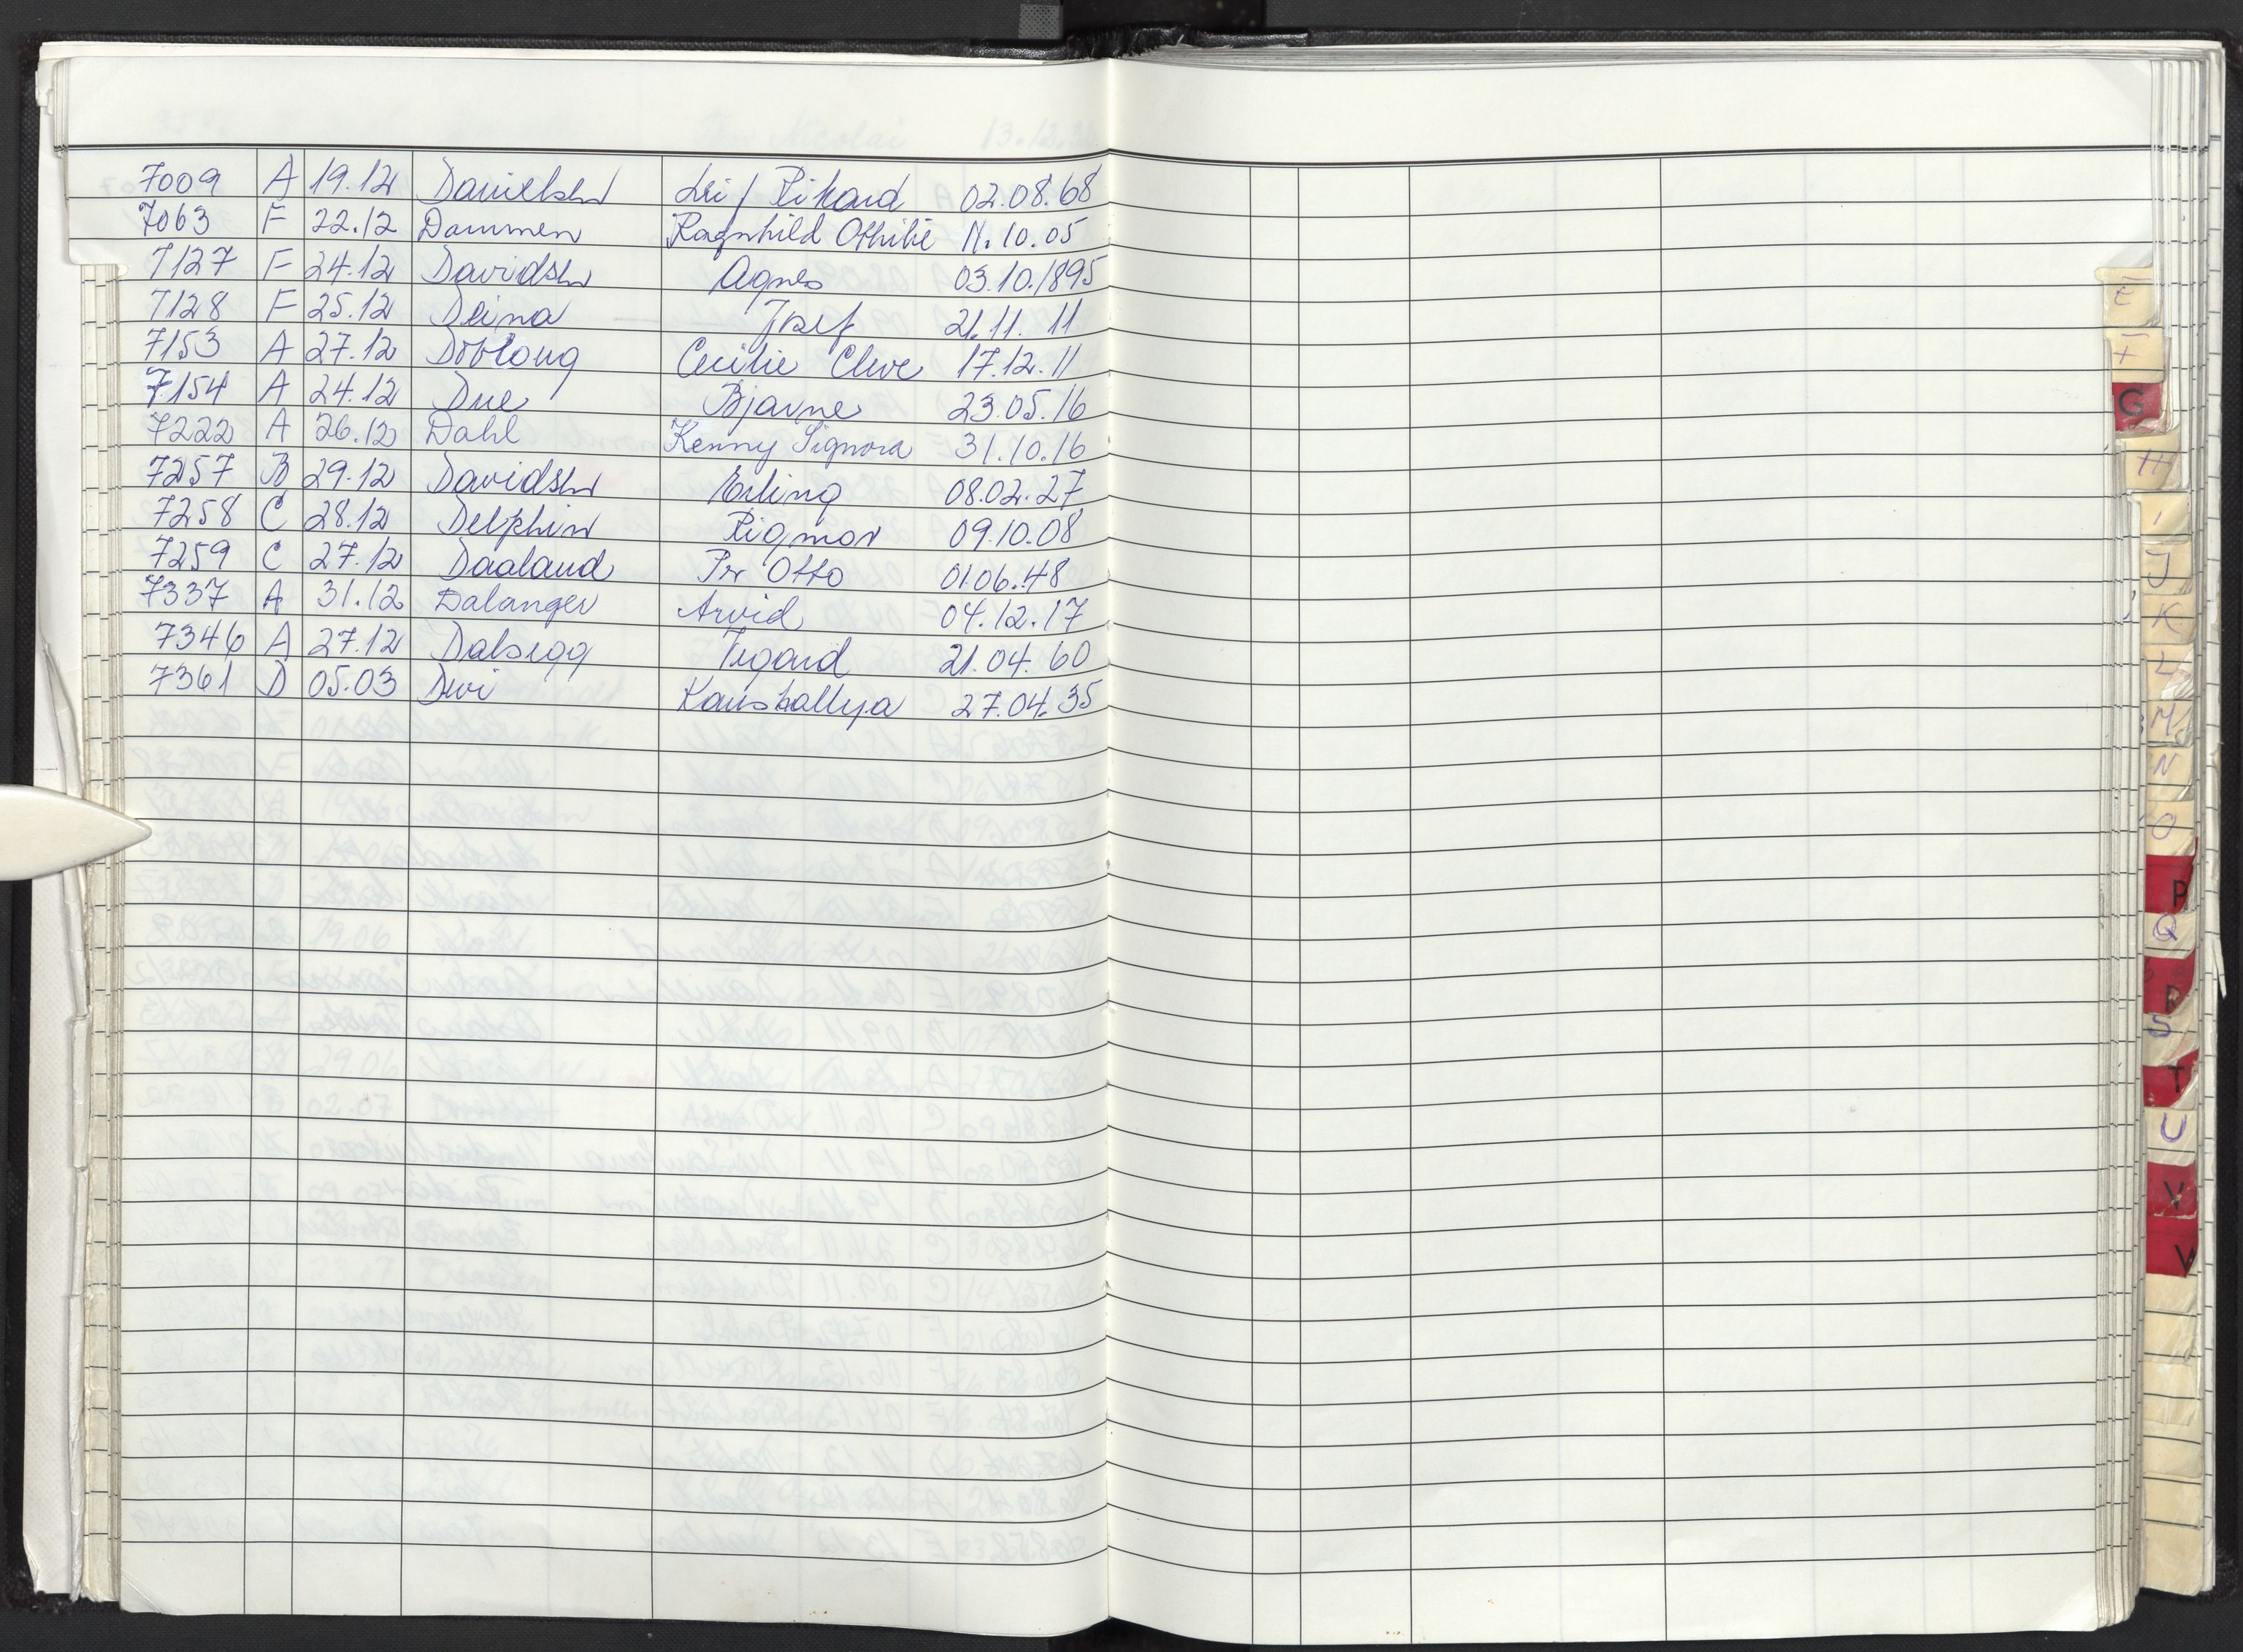 7009 A 19.12 Danielsen Lei / Rikard 02.08.68
7063 F 22.12 Dammen Ragnhild Othilie 11.10.05
7127 F 24.12 Davidsen Agnes 03.10.1895
7128 F 25.12 Deina Josef 21.11.11
7153 A 27.12 Dobloug Cecilie Cleve 17.12.11
7154 A 24.12 Due Bjarne 23.05.16
7222 A 26.12 Dahl Kenny Signora 31.10.16
7257 B 29.12 Davidsen Erling 08.02.27
7258 C 28.12 Delphin Rigmor 09.10.08
7259 C 27.12 Daaland Per Otto 01.06.48
7337 A 31.12 Dalanger Arvid 04.12.17
7346 A 27.12 Dalsegg Vegard 21.04.60
7361 D 05.03 Devi Kaushallya 27.04.35
E
F
G
H
I
J
K
L
M
N
O
P
Q
R
S
T
U
V